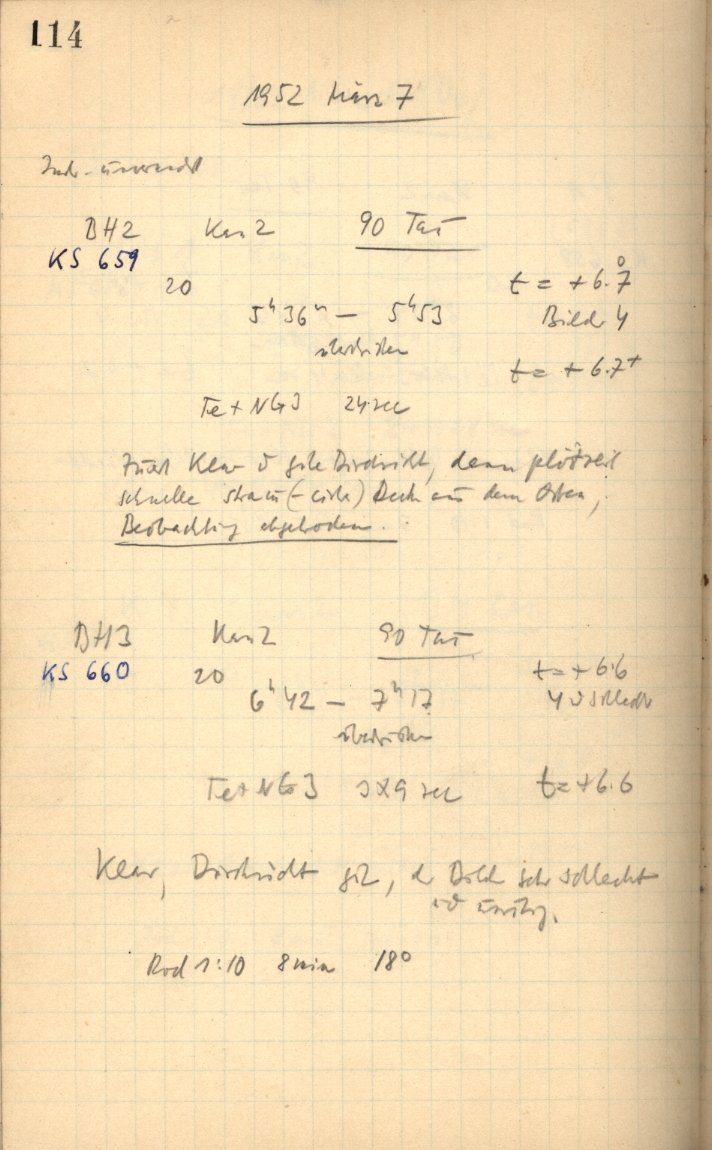 114
1952 März 7
BH2 Kas 2 90 Tau
KS 659
20 t = +6.7°
5ʰ36ᵐ — 5ʰ53 Bild 4
t = +6.7
Te + NG3 24 sec
Zuerst Klar u gute Durchsicht, dann plötzlich
schnelle Decke aus dem Osten,
Beobachtung abgebrochen.
BH3 Kas 2 90 Tau
KS 660 20 t = +6.6
6ʰ42 — 7ʰ17 4 u schlecht
Te + NG3 3x9 sec t = +6.6
Klar, Durchsicht gut, Bild sehr schlecht
und unruhig.
Rod 1:10 8 min 18°